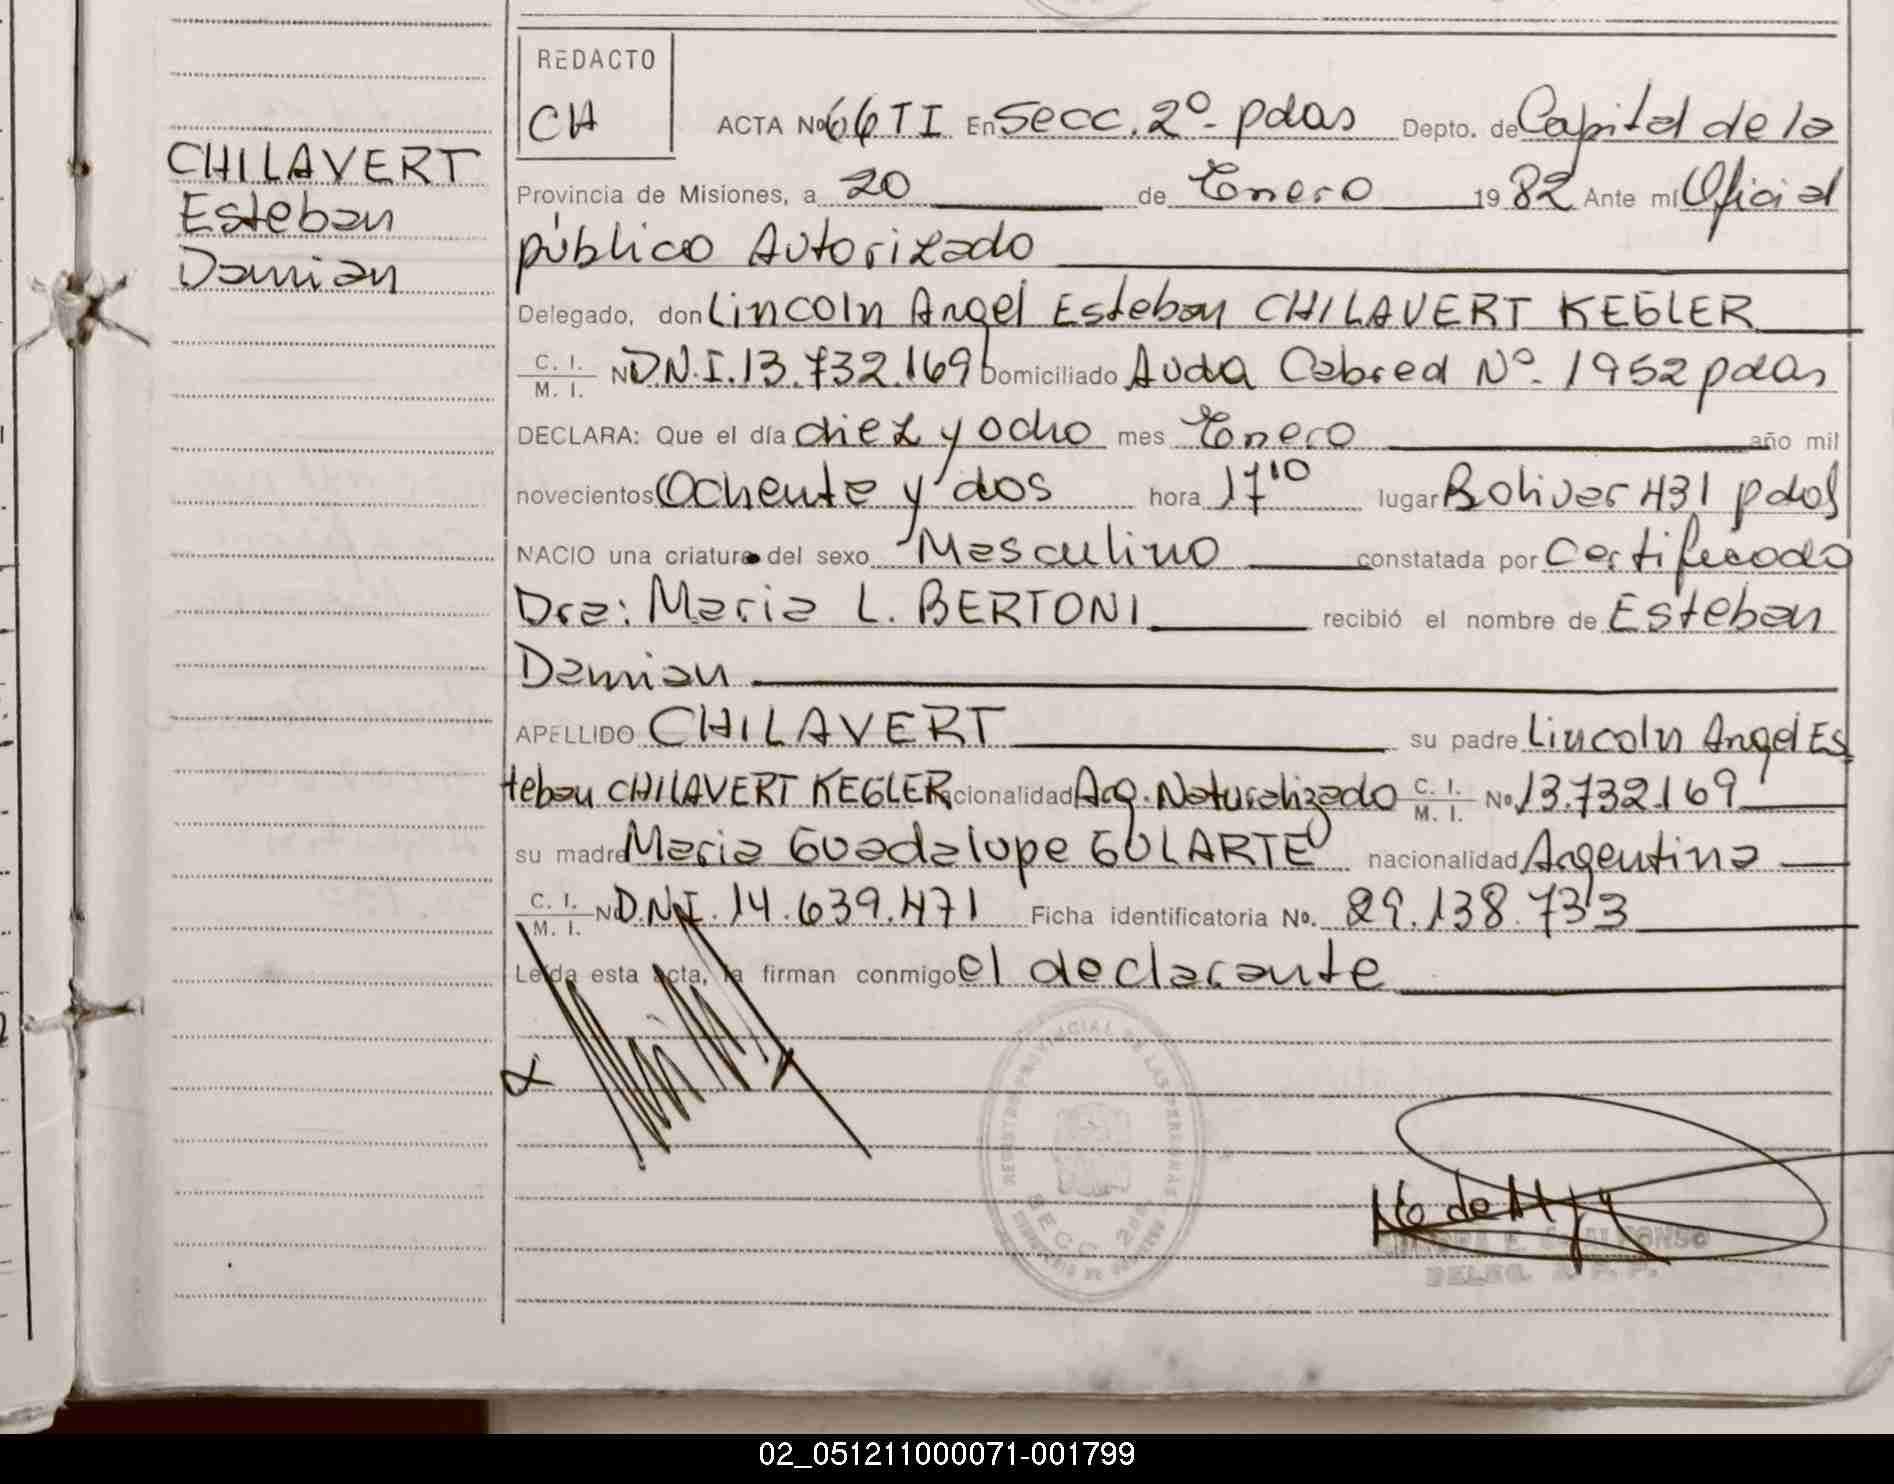 REDACTO
CH
ACTA Nº 66 TI En Secc. 2º- pdas Depto. de Capital de la
CHILAVERT
Esteban
Damian
Provincia de Misiones, a 20 de Enero 1982 Ante mí Oficial
público Autorizado
Delegado, don Lincoln Angel Esteban CHILAVERT KEGLER
C. I. M. I. Nº D.N.I. 13.732.169 Domiciliado Avda Cabred Nº- 1952 pdas
DECLARA: Que el día diez y ocho mes Enero año mil
novecientos Ochenta y dos hora 17¹⁰ lugar Bolivar 431 pdas
NACIO una criatura del sexo Masculino constatada por Certificado
Dra: Maria L. BERTONI recibió el nombre de Esteban
Damian
APELLIDO CHILAVERT su padre Lincoln Angel Es
teban CHILAVERT KEGLER nacionalidad Arg. Naturalizado C. I. M. I. Nº 13.732.169
su madre Maria Guadalupe GULARTE nacionalidad Argentina
C. I. M. I. Nº D.N.I. 14.639.471 Ficha identificatoria Nº. 29.138.733
Leída esta acta, la firman conmigo el declarante
REGISTRO PROVINCIAL DE LAS PERSONAS
SECC. 2da
DELEG. R. P. P.
02_051211000071-001799